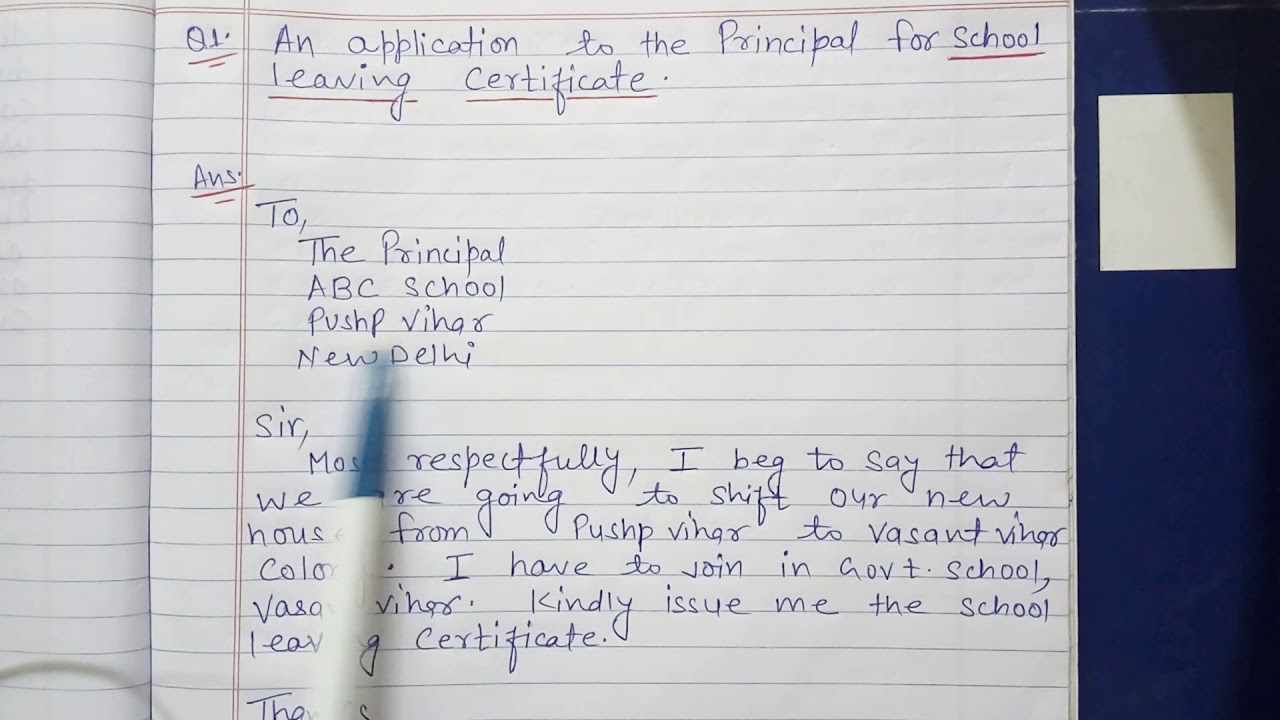 Q1. An application to the Principal for school
leaving Certificate.
Ans.
To,
The Principal
ABC School
Pushp vihar
New Delhi
Sir,
respectfully, I beg to say that
we going to shift our new
from Pushp vihar to vasant vihar
I have to join in Govt. school,
vihar. Kindly issue me the school
Certificate.